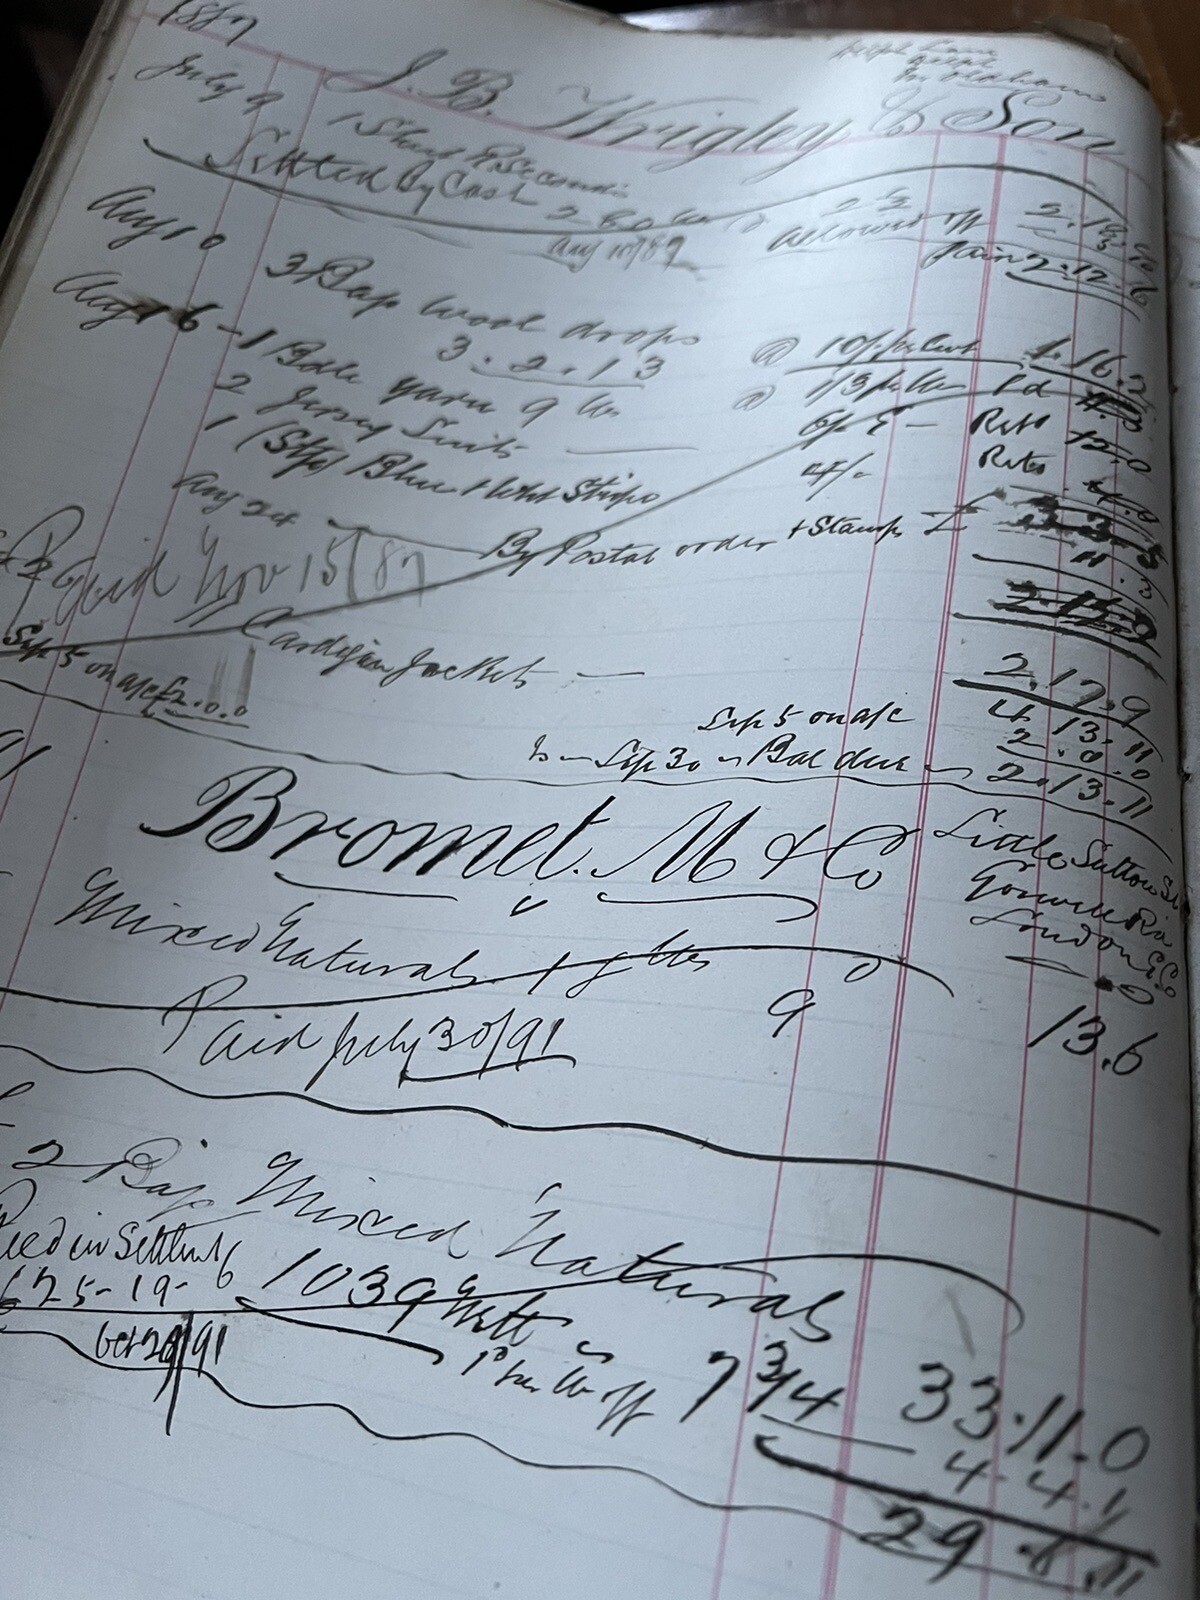 1887
July 9
J. B. Wrigley & Son
Settled By Cash
Aug 10/87
2 1/2
allowed off
2.12.6
Aug 10
3 Bags wool drops
3.2.13
@ 10/- per Cwt 1.16.2
Aug 16 - 1 Bale yarn 9 lbs @ 1/3 per lb
2 Jersey Suits 6/6 E - Retd 12.0
1 (Stp) Blue & Stripe 4/-
Aug 24
By Postal order + Stamps £
11.3
Paid Nov 15/87
Cardigan Jackets
2.17.9
Sep 5 on a/c £2.0.0
4.13.11
Sep 5 on a/c 2.0.0
Sep 30 Bal due 2.13.11
91
Bromet. M & Co
Little Sutton St
Goswell Rd
London E.C.
Mixed Naturals
9
13.6
Paid July 30/91
2 Bags Mixed Naturals
Recd in Settlmt
£25-19-6
1039 Nett
7 3/4
33.11.0
Oct 29/91
1d per lb off
4.4.1
29.6.11